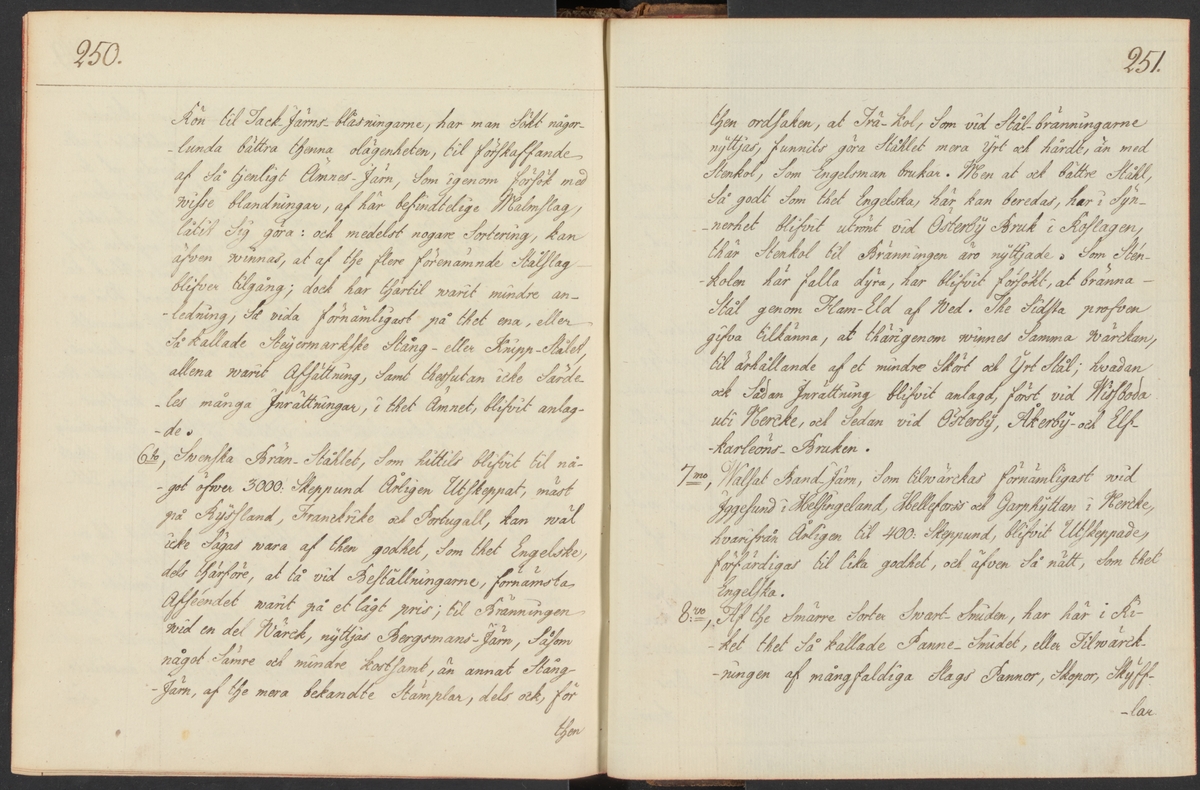 250.
Kön til Tack-Järns-blåsningarne, har man sökt någor-
-lunda bättra thenna olägenheten, til förskaffande
af så tjenligt Ämnes-Järn, som igenom försök med
wisse blandningar, af här befindtelige Malmslag,
låtit sig göra: och medelst nogare Sortering, kan
äfven winnas, at af the flere förenämnde Stålslag
blifver tilgång; dock har thärtil warit mindre an-
-ledning, så vida förnämligast på thet ena, eller
så kallade Steyermarkske Stång- eller Knipp-Stålet,
allena warit Afsättning, samt thessutan icke särde-
-les många Inrättningar, i thet Ämnet, blifvit anlag-
-de.
6to, Swenska Brän-Ståhlet, som hittils blifvit til nå-
-got öfwer 3000: Skeppund Årligen Utskeppat, mäst
på Ryssland, Franckrike och Portugall, kan wäl
icke sägas wara af then godhet, som thet Engelske,
dels thärföre, at tå vid Beställningarne, förnämsta
Afséendet warit på et lågt pris; til Bränningen
wid en del Wärck, nyttjas Bergsmans-Järn, såsom
något sämre och mindre kostsamt, än annat Stång-
-Järn, af the mera bekandte Stamplar, dels ock, för
then
251.
then ordsaken, at Trä-kol, som vid Stål-bränningarne
nyttjas, funnits göra Ståhlet mera Yrt och hårdt, än med
Stenkol, som Engelsman brukar. Men at ock bättre Ståhl,
så godt som thet Engelska, här kan beredas, har i Syn-
-nerhet blifvit utrönt vid Österby Bruk i Roslagen,
thär Stenkol til Bränningen äro nyttjade. Som Sten-
-kolen här falla dyra, har blifvit försökt, at bränna
Stål genom Flam-Eld af Wed. The Sidsta profven
gifva tilkänna, at thärigenom winnes samma wärckan,
til ärhållande af et mindre Skört och Yrt Stål; hvadan
ock sådan Inrättning blifvit anlagd, först vid Wissboda
uti Nercke, och sedan vid Österby, Åkerby- och Elf-
-karleöns-Bruken.
7mo, Walsat Band-Järn, som tilwärckas förnämligast wid
Iggesund i Helsingeland, Hellefors och Garphyttan i Nercke,
hvarifrån Årligen til 400: Skeppund, blifvit Utskeppade,
förfärdigas til lika godhet, och äfven så nätt, som thet
Engelska.
8:vo, Af the smärre Sorter Swart-Smiden, har här i Ri-
-ket thet så kallade Panne-Smidet, eller Tilwärck-
-ningen af mångfaldiga Slags Pannor, Skopor, Skyff-
-lar